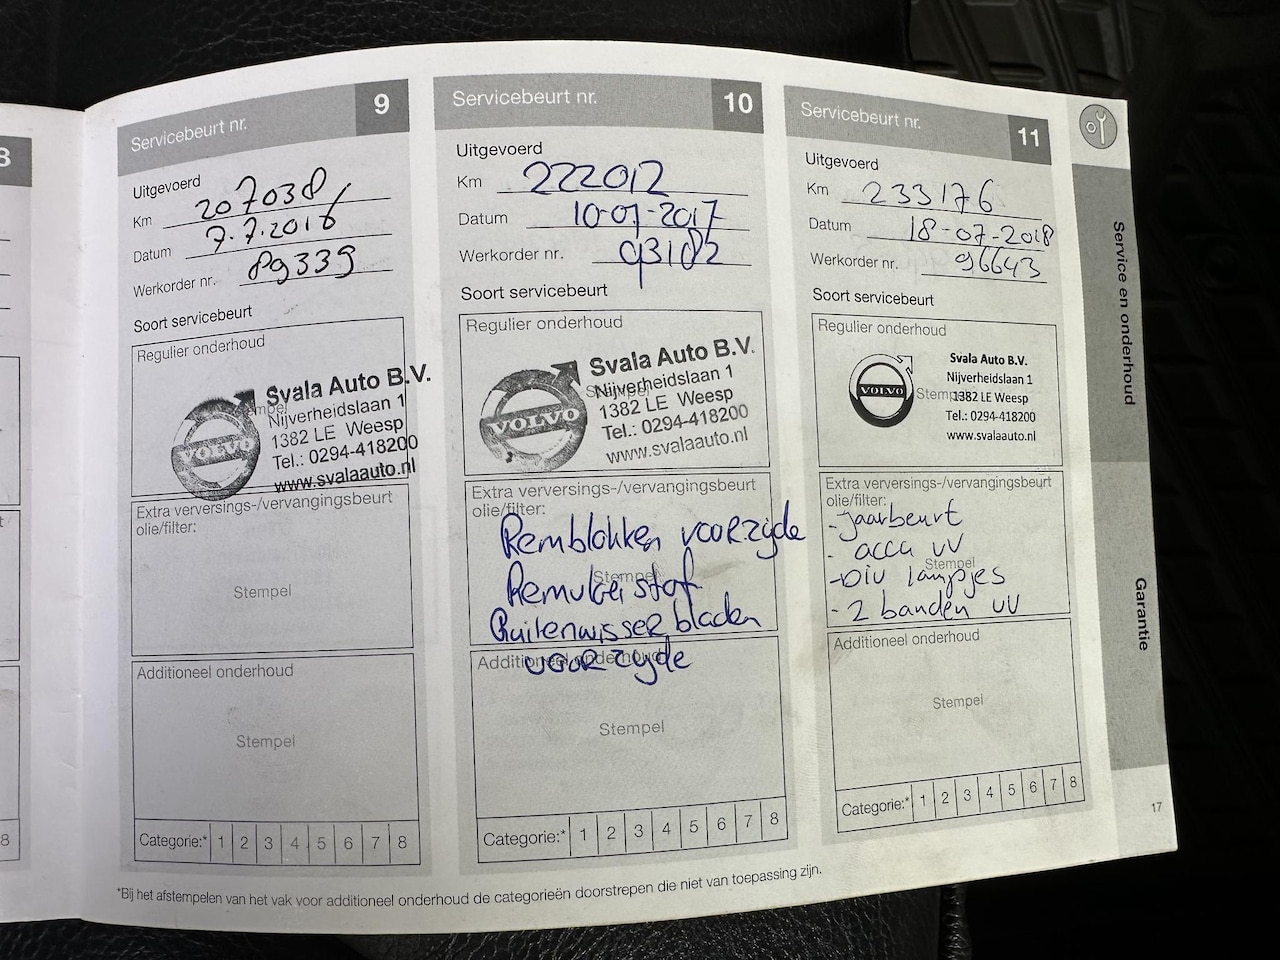 8
8
Servicebeurt nr. 9
Uitgevoerd
Km 207038
Datum 7.7.2016
Werkorder nr. 89339
Soort servicebeurt
Regulier onderhoud
VOLVO
Svala Auto B.V.
Nijverheidslaan 1
1382 LE Weesp
Tel.: 0294-418200
www.svalaauto.nl
Extra verversings-/vervangingsbeurt
olie/filter:
Stempel
Additioneel onderhoud
Stempel
Categorie:* 1 2 3 4 5 6 7 8
Servicebeurt nr. 10
Uitgevoerd
Km 222012
Datum 10-07-2017
Werkorder nr. 93182
Soort servicebeurt
Regulier onderhoud
VOLVO
Svala Auto B.V.
Nijverheidslaan 1
1382 LE Weesp
Tel.: 0294-418200
www.svalaauto.nl
Extra verversings-/vervangingsbeurt
olie/filter:
Remblokken voorzijde
Stempel
Remvloeistof
Ruitenwisserbladen
Additioneel onderhoud
voorzijde
Stempel
Categorie:* 1 2 3 4 5 6 7 8
Servicebeurt nr. 11
Uitgevoerd
Km 233176
Datum 18-07-2018
Werkorder nr. 96643
Soort servicebeurt
Regulier onderhoud
VOLVO
Stempel
Svala Auto B.V.
Nijverheidslaan 1
1382 LE Weesp
Tel.: 0294-418200
www.svalaauto.nl
Extra verversings-/vervangingsbeurt
olie/filter:
- Jaarbeurt
- accu VV
Stempel
- Div lampjes
- 2 banden VV
Additioneel onderhoud
Stempel
Categorie:* 1 2 3 4 5 6 7 8
*Bij het afstempelen van het vak voor additioneel onderhoud de categorieën doorstrepen die niet van toepassing zijn.
Service en onderhoud
Garantie
17